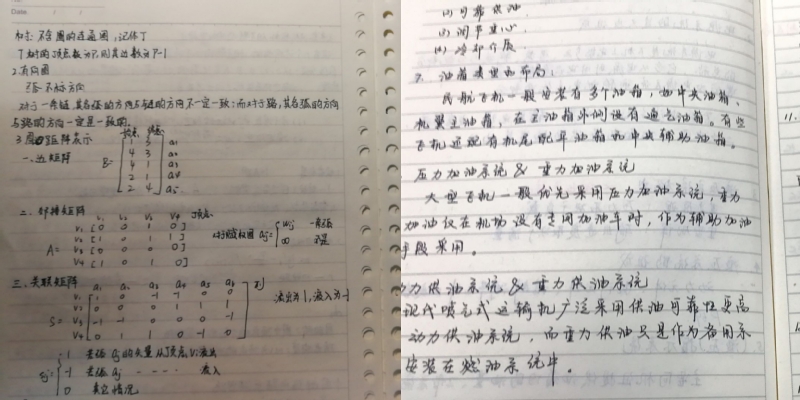 Date.
树：不含圈的连通图，记作T
T树的顶点数为P，则其边数为P-1
2.有向图
路：不标方向
对于一条链，其各弧的方向与链的方向不一定一致；而对于路，其各弧的方向
与路的方向一定是一致的。
3.图的矩阵表示
一、边矩阵
B=
1 3 a₁
4 3 a₂
4 1 a₃
2 1 a₄
2 4 a₅
二、邻接矩阵
V₁ V₂ V₃ V₄ 顶点
V₁ [0 0 1 0]
V₂ [1 0 1 1]
A= V₃ [0 0 0 0]
V₄ [1 0 1 0]
对于赋权图 aij= wij
∞
三、关联矩阵
a₁ a₂ a₃ a₄ a₅ a₆
流出为1，流入为-1
S=
1 若弧aj的矢量从顶点Vi流出
-1 若弧aj ---- 流入
0 其它情况
(1) 可靠供油
(2) 调节重心
(3) 冷却介质
7. 油箱类型和布局：
民航飞机一般安装有多个油箱，如中央油箱、
机翼主油箱，在主油箱外侧设有通气油箱。有些
飞机还配有机尾配平油箱和中央辅助油箱。
压力加油系统 & 重力加油系统
大型飞机一般优先采用压力加油系统，重力
加油仅在机场没有专用加油车时，作为辅助加油
手段采用。
动力供油系统 & 重力供油系统
现代喷气式运输机广泛采用供油可靠性更高
动力供油系统，而重力供油只是作为备用系
安装在燃油系统中。
11.